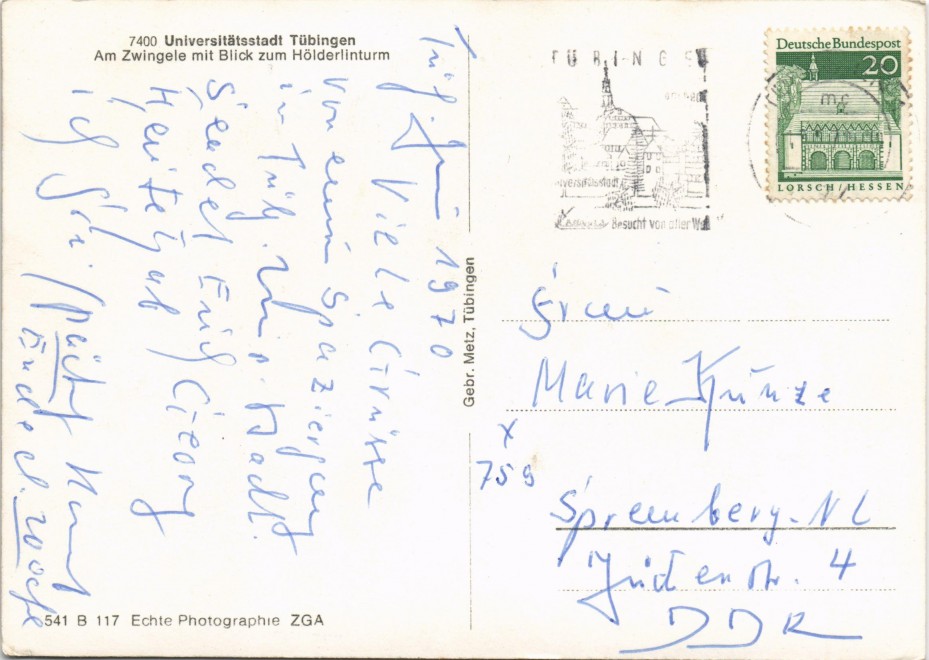 7400 Universitätsstadt Tübingen
Am Zwingele mit Blick zum Hölderlinturm
1970
Viele Grüsse
von einem Spaziergang
in Tüb.
Stadt.
Sendet Euch Georg
Heute ab
ich
Ende d. Woche
541 B 117 Echte Photographie ZGA
Gebr. Metz, Tübingen
TÜBINGE
Universitätsstadt
Besucht von aller We
Deutsche Bundespost
20
LORSCH/HESSEN
Frau
Marie Kunze
x
759
Spremberg-NL
Jüdenstr. 4
DDR